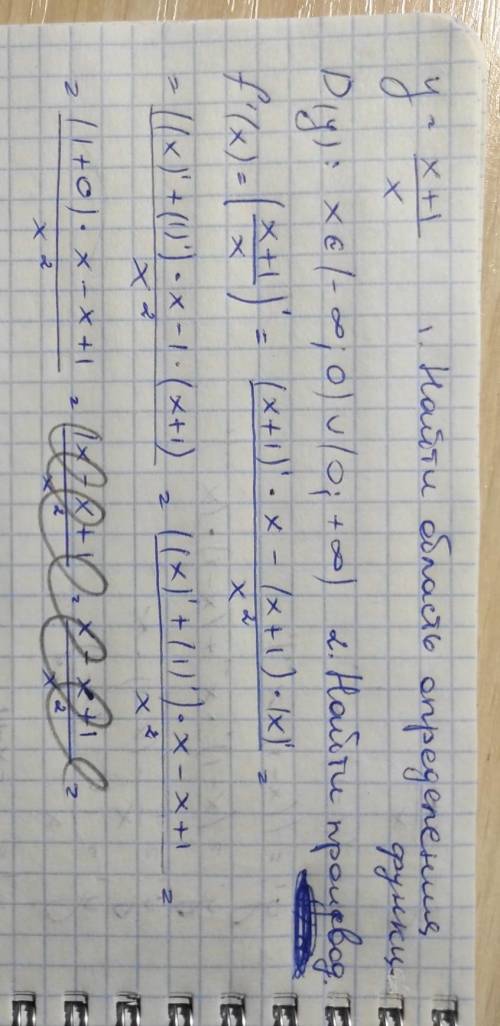 y = x+1/x 1. Найти область определения
функц.
D(y): x ∈ (-∞; 0) ∪ (0; +∞) 2. Найти производ.
f'(x) = (x+1/x)' = (x+1)' · x - (x+1) · (x)'/x² =
= ((x)' + (1)') · x - 1 · (x+1)/x² = ((x)' + (1)') · x - x + 1/x² =
= (1+0) · x - x + 1/x² =